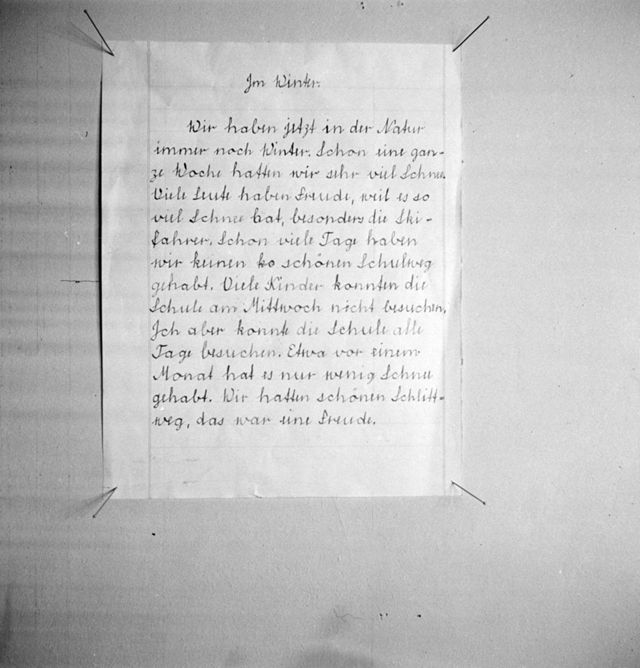 Im Winter.
Wir haben jetzt in der Natur
immer noch Winter. Schon eine gan-
ze Woche hatten wir sehr viel Schnee.
Viele Leute haben Freude, weil es so
viel Schnee hat, besonders die Ski-
fahrer. Schon viele Tage haben
wir keinen so schönen Schulweg
gehabt. Viele Kinder konnten die
Schule am Mittwoch nicht besuchen.
Ich aber konnte die Schule alle
Tage besuchen. Etwa vor einem
Monat hat es nur wenig Schnee
gehabt. Wir hatten schönen Schlitt-
weg, das war eine Freude.